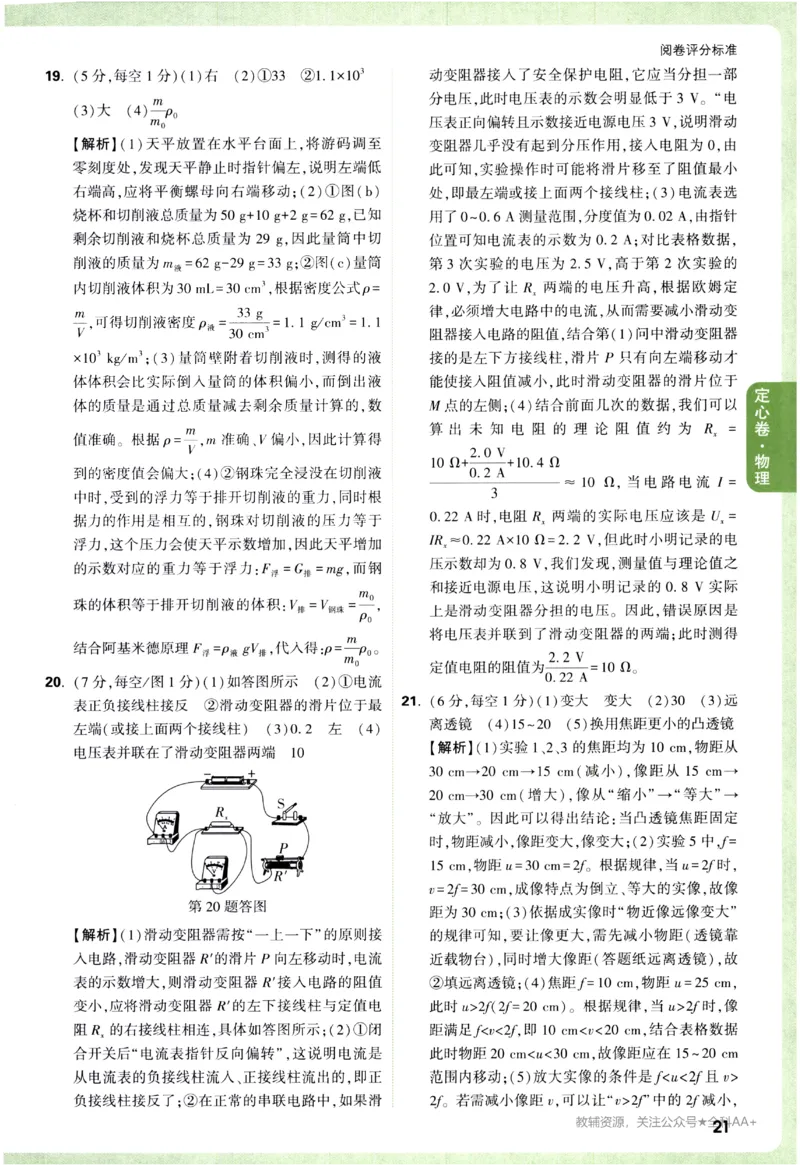 阅卷评分标准
19. (5分,每空1分)(1)右 (2)①33 ②1.1×10³
(3)大 (4)m/m₀ρ₀
【解析】(1)天平放置在水平台面上,将游码调至
零刻度处,发现天平静止时指针偏左,说明左端低
右端高,应将平衡螺母向右端移动;(2)①图(b)
烧杯和切削液总质量为50 g+10 g+2 g=62 g,已知
剩余切削液和烧杯总质量为 29 g,因此量筒中切
削液的质量为m液=62 g-29 g=33 g;②图(c)量筒
内切削液体积为30 mL=30 cm³,根据密度公式ρ=
m/V,可得切削液密度ρ液=33 g/30 cm³=1.1 g/cm³=1.1
×10³ kg/m³;(3)量筒壁附着切削液时,测得的液
体体积会比实际倒入量筒的体积偏小,而倒出液
体的质量是通过总质量减去剩余质量计算的,数
值准确。根据ρ=m/V,m 准确、V 偏小,因此计算得
到的密度值会偏大;(4)②钢珠完全浸没在切削液
中时,受到的浮力等于排开切削液的重力,同时根
据力的作用是相互的,钢珠对切削液的压力等于
浮力,这个压力会使天平示数增加,因此天平增加
的示数对应的重力等于浮力:F浮=G排=mg,而钢
珠的体积等于排开切削液的体积:V排=V钢珠=m₀/ρ₀,
结合阿基米德原理 F浮=ρ液gV排,代入得:ρ=m/m₀ρ₀。
20. (7分,每空/图1分)(1)如答图所示 (2)①电流
表正负接线柱接反 ②滑动变阻器的滑片位于最
左端(或接上面两个接线柱) (3)0.2 左 (4)
电压表并联在了滑动变阻器两端 10
- +
S
Rₓ
P
R′
第20题答图
【解析】(1)滑动变阻器需按“一上一下”的原则接
入电路,滑动变阻器R′的滑片P向左移动时,电流
表的示数增大,则滑动变阻器R′接入电路的阻值
变小,应将滑动变阻器R′的左下接线柱与定值电
阻Rₓ的右接线柱相连,具体如答图所示;(2)①闭
合开关后“电流表指针反向偏转”,这说明电流是
从电流表的负接线柱流入、正接线柱流出的,即正
负接线柱接反了;②在正常的串联电路中,如果滑
动变阻器接入了安全保护电阻,它应当分担一部
分电压,此时电压表的示数会明显低于3 V。“电
压表正向偏转且示数接近电源电压3 V,说明滑动
变阻器几乎没有起到分压作用,接入电阻为0,由
此可知,实验操作时可能将滑片移至了阻值最小
处,即最左端或接上面两个接线柱;(3)电流表选
用了0~0.6 A测量范围,分度值为0.02 A,由指针
位置可知电流表的示数为0.2 A;对比表格数据,
第3次实验的电压为2.5 V,高于第2次实验的
2.0 V,为了让Rₓ两端的电压升高,根据欧姆定
律,必须增大电路中的电流,从而需要减小滑动变
阻器接入电路的阻值,结合第(1)问中滑动变阻器
接的是左下方接线柱,滑片P只有向左端移动才
能使接入阻值减小,此时滑动变阻器的滑片位于
M点的左侧;(4)结合前面几次的数据,我们可以
算出未知电阻的理论阻值约为 Rₓ =
(10 Ω+2.0 V/0.2 A+10.4 Ω)/3 ≈ 10 Ω,当电路电流 I =
0.22 A时,电阻Rₓ两端的实际电压应该是Uₓ=
IRₓ≈0.22 A×10 Ω=2.2 V,但此时小明记录的电
压示数却为0.8 V,我们发现,测量值与理论值之
和接近电源电压,这说明小明记录的0.8 V实际
上是滑动变阻器分担的电压。因此,错误原因是
将电压表并联到了滑动变阻器的两端;此时测得
定值电阻的阻值为2.2 V/0.22 A=10 Ω。
21. (6分,每空1分)(1)变大 变大 (2)30 (3)远
离透镜 (4)15~20 (5)换用焦距更小的凸透镜
【解析】(1)实验1、2、3的焦距均为10 cm,物距从
30 cm→20 cm→15 cm(减小),像距从 15 cm→
20 cm→30 cm(增大),像从“缩小”→“等大”→
“放大”。因此可以得出结论:当凸透镜焦距固定
时,物距减小,像距变大,像变大;(2)实验5中,f=
15 cm,物距u=30 cm=2f。根据规律,当u=2f时,
v=2f=30 cm,成像特点为倒立、等大的实像,故像
距为30 cm;(3)依据成实像时“物近像远像变大”
的规律可知,要让像更大,需先减小物距(透镜靠
近载物台),同时增大像距(答题纸远离透镜),故
②填远离透镜;(4)焦距f=10 cm,物距u=25 cm,
此时u>2f(2f=20 cm)。根据规律,当u>2f时,像
距满足f<v<2f,即10 cm<v<20 cm,结合表格数据
此时物距20 cm<u<30 cm,故像距应在15~20 cm
范围内移动;(5)放大实像的条件是f<u<2f且v>
2f。若需减小像距v,可以让“v>2f”中的2f减小,
定心卷·物理
教辅资源,关注公众号★全科AA+
21